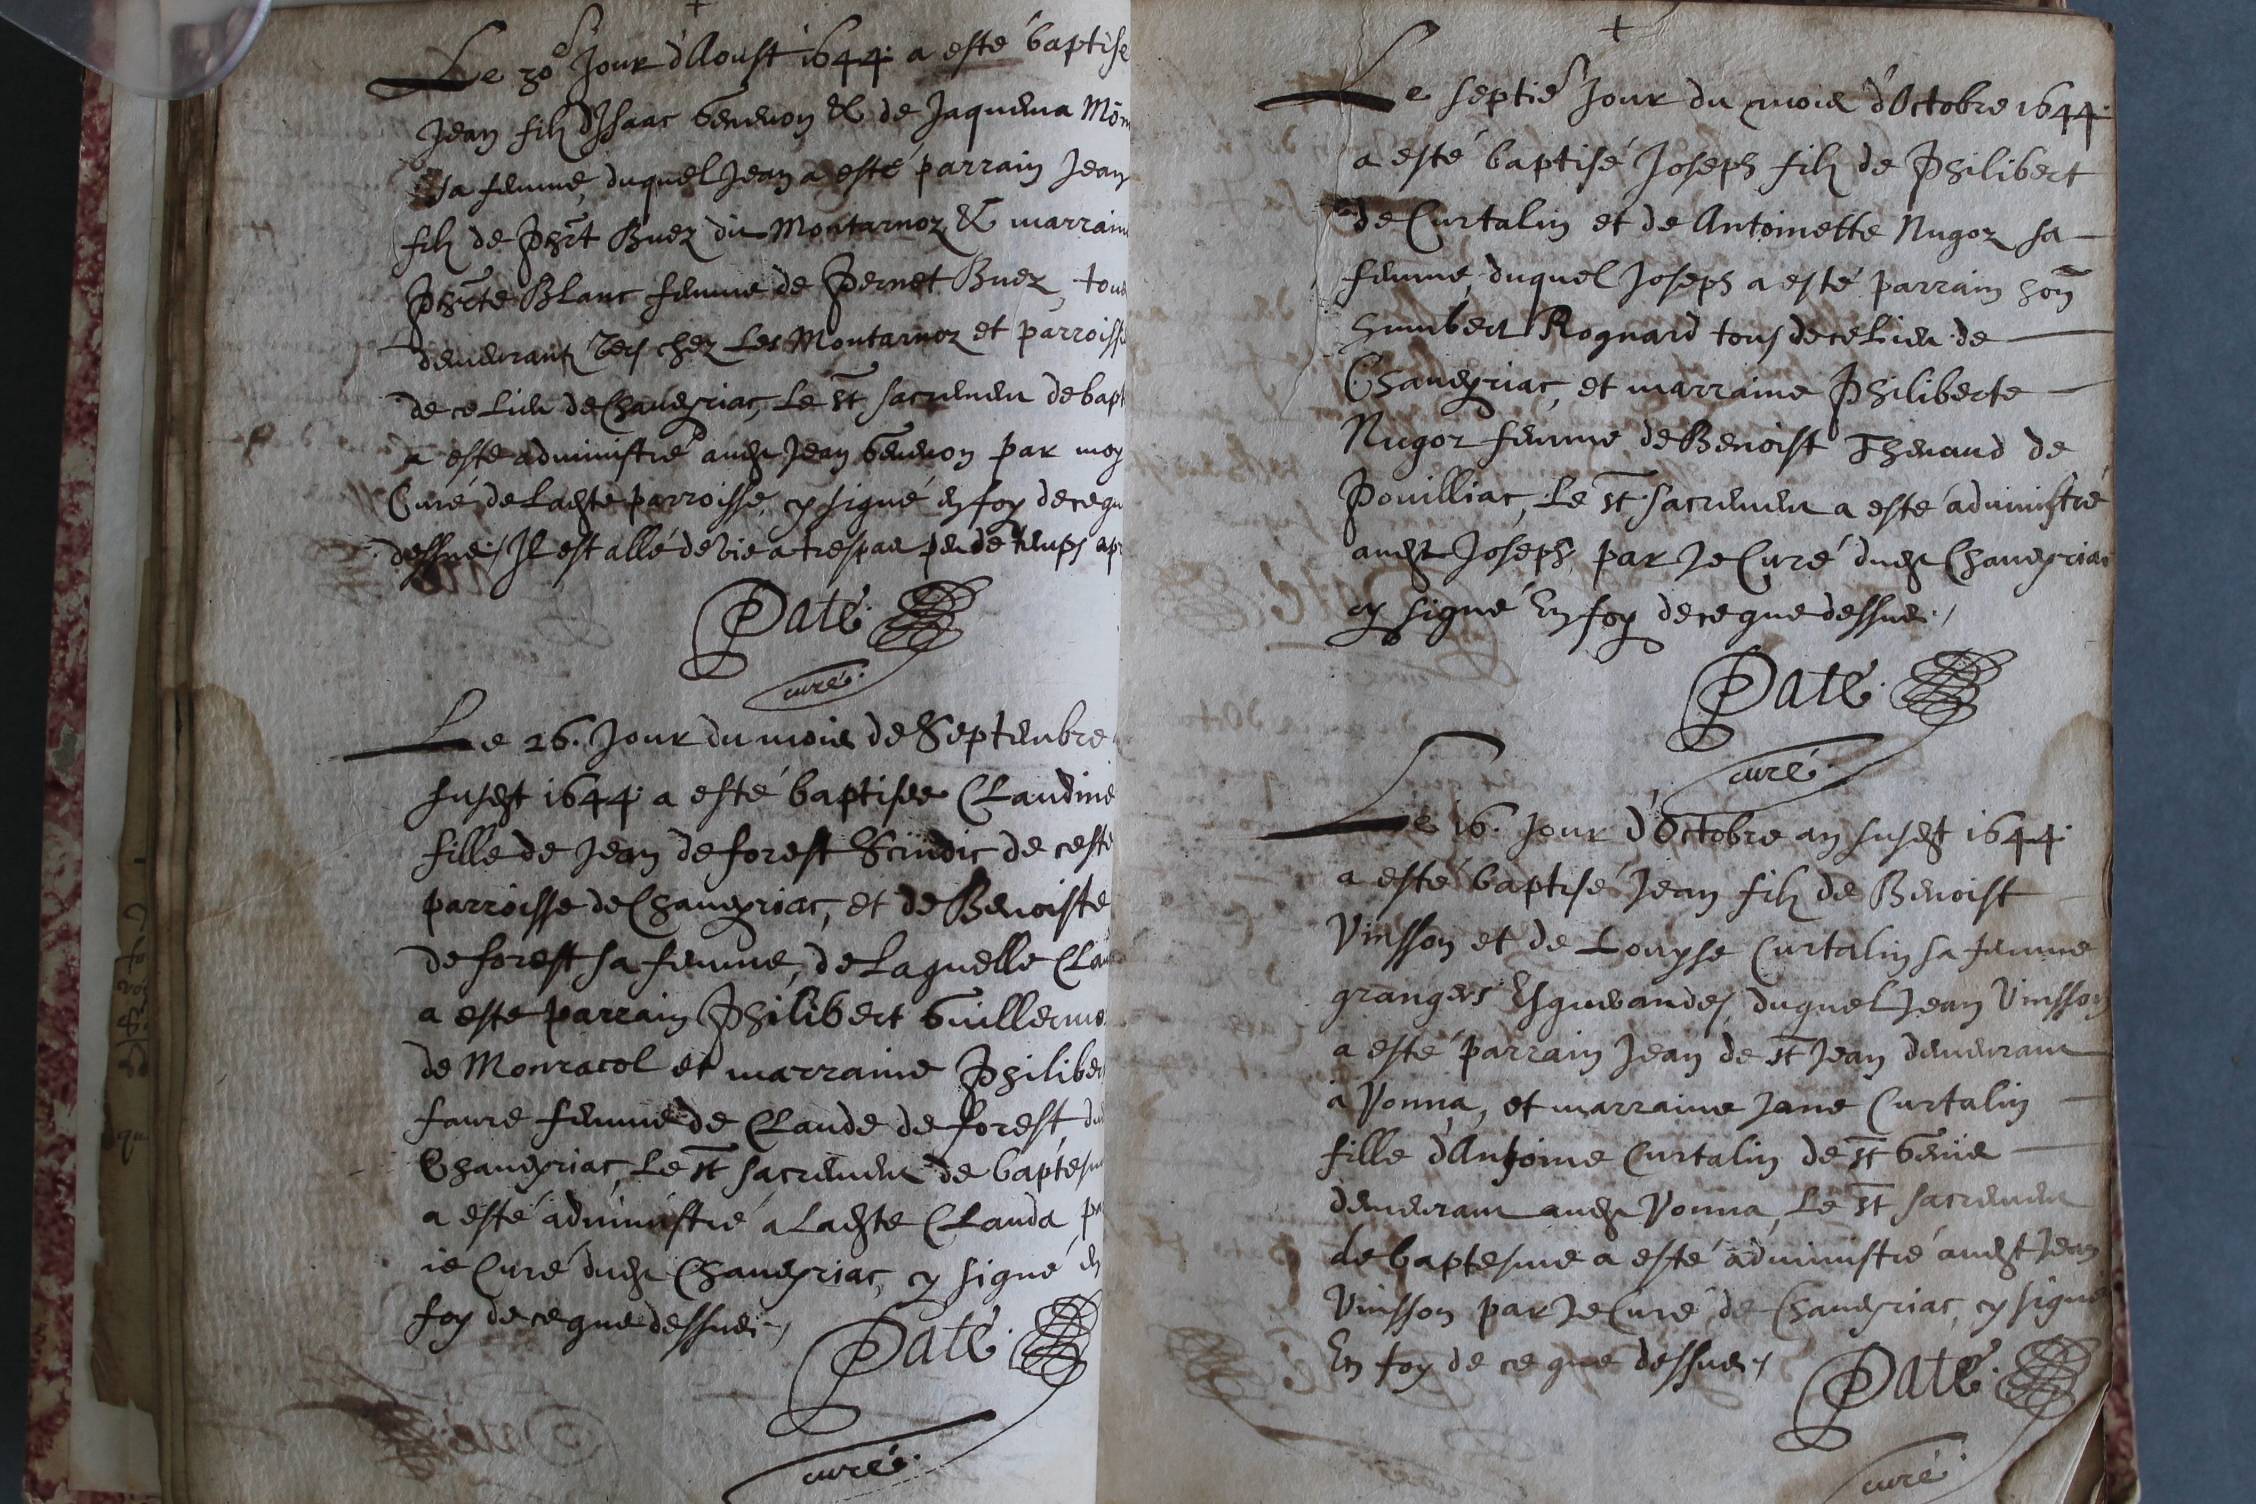 Le 30e Jour d'Aoust 1644 a esté baptisé
Jean filz d'Isaac Genevon & de Jaquema
sa femme, duquel Jean a esté parrain Jean
filz de Phrt Buez du Montarnoz & marraine
Phrte Blanc femme de Pernet Buez, tous
demeurantz vers chez Les Montarnoz et parroisse
de ce Lieu de Chaveyriac, Le st sacrement de bapt
a esté administré audt Jean Genevon par moy
Curé de Ladte parroisse, cy signé en foy de ce que
dessus / Il est allé de vie a trespas peu de temps apr
Paté
curé
Le 26. Jour du mois de Septembre
susdt 1644 a esté baptisee Claudine
fille de Jean de forest Scindic de ceste
parroisse de Chaveyriac, et de Benoiste
de forest sa femme, de Laquelle Clau
a esté parrain Philibert Guillermo
de Monracol et marraine Philiber
faure femme de Claude de forest, du
Chaveyriac, Le st sacrement de baptesm
a esté administré a Ladte Clauda, pa
ie Curé dudt Chaveyriac, cy signé en
foy de ce que dessus /
Paté
curé
Le septie Jour du mois d'Octobre 1644
a esté baptisé Joseph filz de Philibert
de Curtalin et de Antoinette Nugoz sa
femme, duquel Joseph a esté parrain hon
humbert Rognard tous de ce Lieu de
Chaveyriac, et marraine Philiberte
Nugoz femme de Benoist Thevaud de
Pouilliac, Le st sacrement a esté administré
audt Joseph, par Je Curé dudt Chaveyriac
cy signé En foy de ce que dessus /
Paté
curé
Le 16. Jour d'Octobre an susdt 1644
a esté baptisé Jean filz de Benoist
Vinsson et de Louyse Curtalin sa femme
grangers duquel Jean Vinsson
a esté parrain Jean de st Jean demeurant
à Vonna, et marraine Jane Curtalin
fille d'Antoine Curtalin de st Genis
demeurant audt Vonna, Le st sacrement
de baptesme a esté administré audt Jean
Vinsson par Je Curé de Chaveyriac, cy signé
En foy de ce que dessus /
Paté
curé